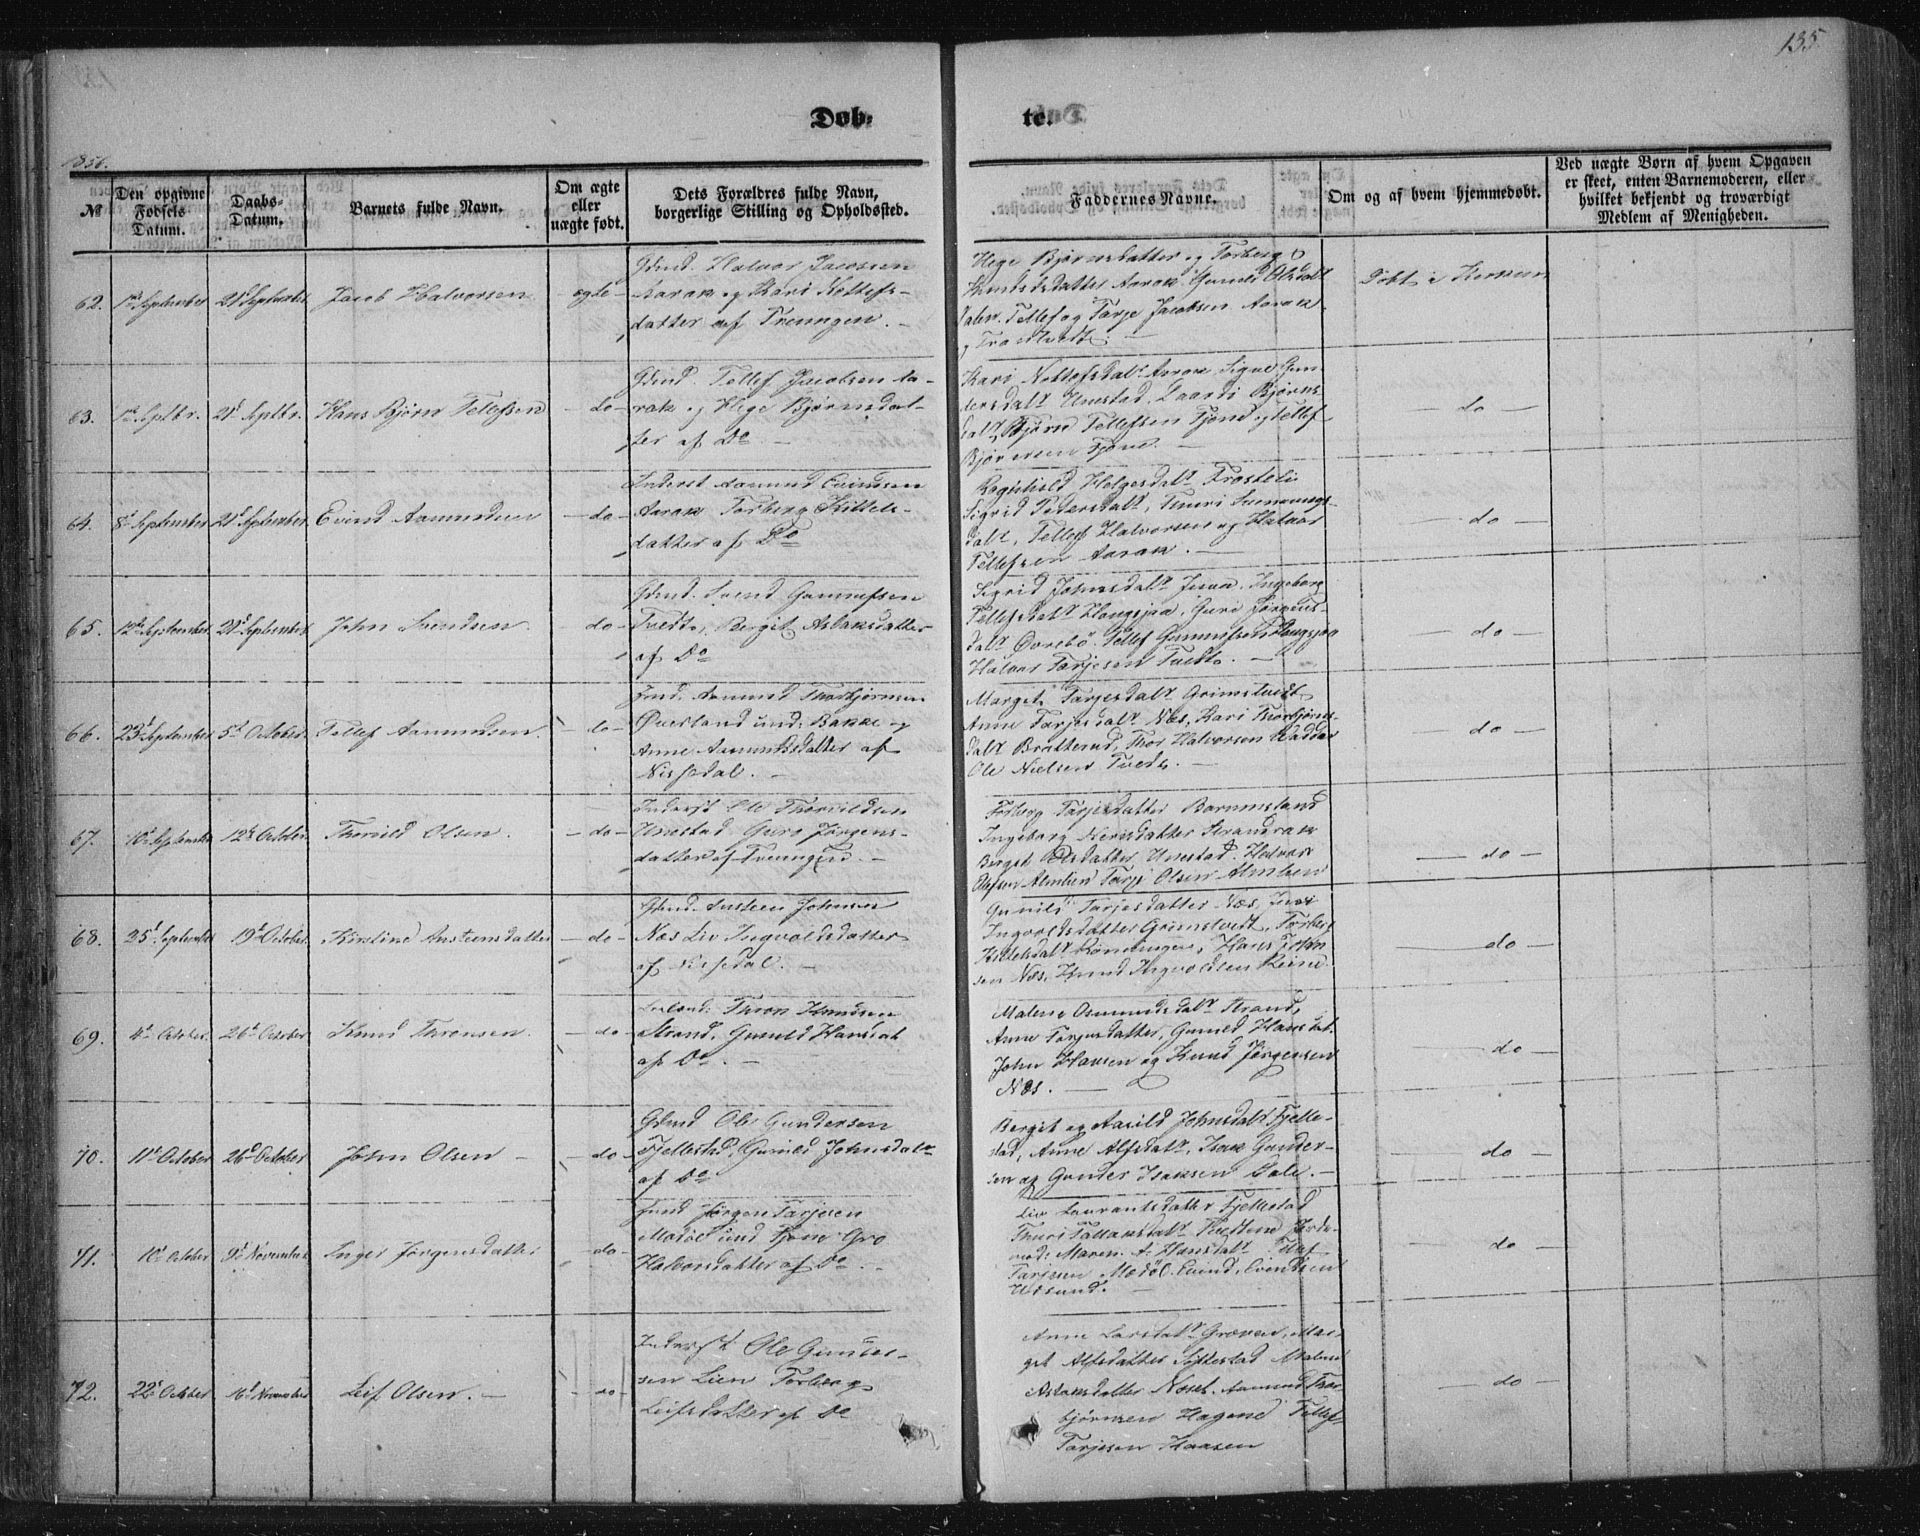 135.
Døb-
te.
1856.
№
Den opgivne Fødsels Datum.
Daabs-Datum.
Barnets fulde Navn.
Om ægte eller uægte født.
Dets Forældres fulde Navn, borgerlige Stilling og Opholdssted.
Faddernes Navne.
Om og af hvem hjemmedøbt.
Ved uægte Børn af hvem Opgaven
er skeet, enten Barnemoderen, eller
hvilket bekjendt og troværdigt
Medlem af Menigheden.
62. 1ste September 21d September Jacob Halvorsen ægte
Gbmd. Halvor Jacobsen
Aarak og Kari Nottolfs-
datter af Treungen. -
Hege Bjørnsdatter og Torberg
Knudsdatter Aarak, Gunild Olsdatt
Dalen. Tellef og Tarje Jacobsen Aarak
Døbt i Kirken
63. 21d Septbr. Hans Bjørn Tellefsen - do -
Gbmd. Tellef Jacobsen Aa-
rak og Hege Bjørnsdat-
ter af Do -
Kari Aarak, Signe Gun-
dersdatr Unestad, Taardi Bjørns
datr, Bjørn Tellefsen Fjone og Tellef
Bjørnsen Fjone. -
- do -
64. 8d September 21d September Evind Aamundsen - do -
Inderst Aamund Evindsen
Aarak Torberg Kittels-
datter af Do
Ragnhild Helgesdatr
Sigrid Pedersdatr,
datr, Tellef Halvorsen og Halvor
Tellefsen Aarak. -
- do -
65. 12te September 21d September John Svendsen - do -
Gbmd. Svend Gunnufsen
Tvedt, Bergit Aslaksdatter
af Do
Sigrid Johnsdatr Ingeborg
Tellefsdatr Haugsjaa, Guri Jørgens-
datr Øvrebø, Tellef Gunnufsen Haugsjaa
Halvor Tarjesen Tvedt. -
- do -
66. 23d September 5d October Tellef Aamundsen. - do -
Aamund Thorbjørnsen
Øverland und: Bakke og
Anne Aamundsdatter af
Nissedal. -
Marget Tarjesdatr Grimstvedt
Anne Tarjesdatr Næs, Kari Thorbjørns-
datr Bratterud, Thor Halvorsen
Ole Nielsen Tvedt. -
- do -
67. 10d September 12te October Thorvild Olsen. - do -
Inderst Ole Thorvildsen
Unestad Guro Jørgens-
datter af Treungen. -
Torberg Tarjesdatter
Ingeborg Strandrak
Bergit Olsdatter, Unestad, Halvor
Olefsen Almlien Tarje Olsen Almlien
- do -
68. 25d September 19d October Kirstine Austeensdatter - do -
Gbmd. Austeen Johnsen
Næs Liv Ingvoldsdatter
af Nissedal. -
Gunild Tarjesdatter Næs,
Ingvoldsdatter Grimstvedt, Torberg
Kittelsdatr Rønningen, Hans John
sen Næs, Knud Ingvoldsen
- do -
69. 4d October. 26d October Knud Thronsen. - do -
Thron Knudsen
Strand, Gunild Hansdat
af Do. -
Malene Osmundsdatr Strand,
Anne Tarjesdatter, Gunild Hansdat.
John Hansen og Knud Jørgensen
Næs. -
- do -
70. 11d October 26d October John Olsen - - do -
Gbmd Ole Gundersen
Fjellestad, Gunild Johnsdatr
af Do
Bergit og Aasild Johnsdatr Fjelle-
stad, Anne Alfsdatr, Isak Gunder-
sen og Gunder Isaksen Dale. -
- do -
71. 10d October 9d November Inger Jørgensdatter - do -
Jørgen Tarjesen
Modøl und Fjone Gro
Halvorsdatter af Do. -
Liv Laurantsdatter Fjellestad
Maren A. Hansdatr Tellef
Tarjesen Modøl. Evind Evendsen
- do -
72. 22d October 16d November Leif Olsen. - - do -
Inderst Ole Gunder-
sen Lien Torberg
Leifsdatter af Do
Anne Larsdatr Græven, Mar-
get Alfsdatter Malene
Aslaksdatter Næset. Aamund Thor
bjørnsen Hagene Tellef
Tarjesen
- do -